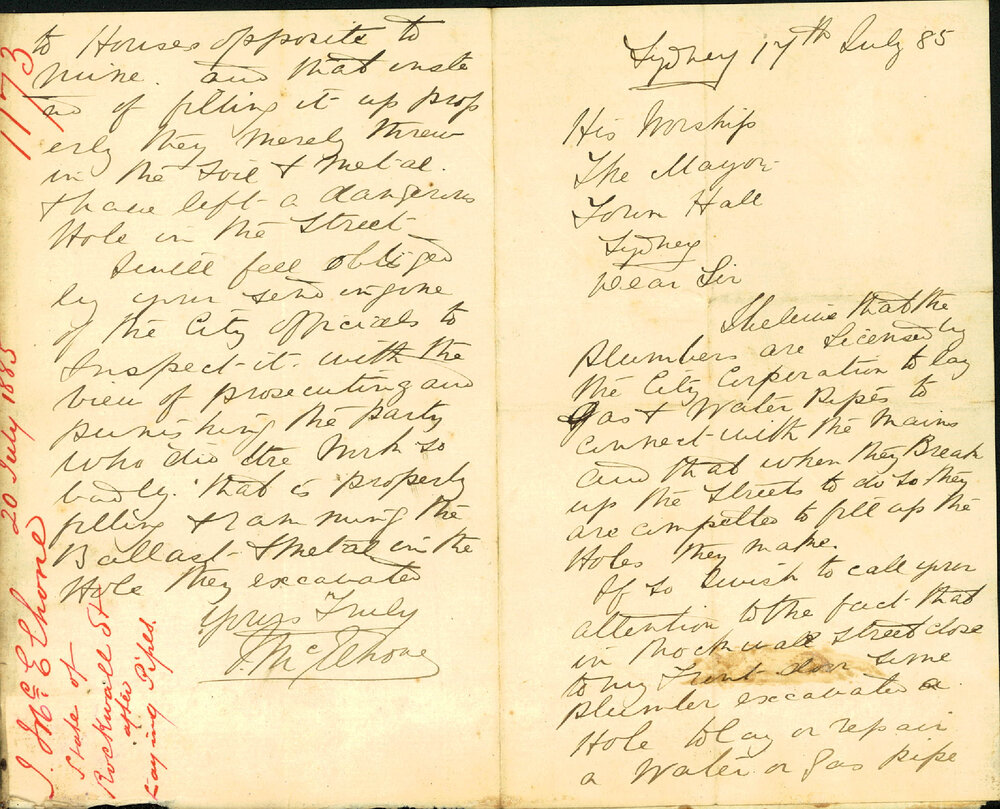 Sydney 17th July 85
His Worship
The Mayor
Town Hall
Sydney
Dear Sir
I beleive that the
Plumbers are Licensed by
the City Corporation to lay
Gas & Water Pipes to
Connect with the Mains
and that when they Break
up the Streets to do so they
are compelled to fill up the
Holes they make.
If so I wish to call your
attention to the fact that
in Rockwall Street close
to my Front door some
Plumber excavated a
Hole to lay or repair
a Water or Gas pipe
to Houses opposite to
mine. and that inste
ad of filling it up prop
erly they merely threw
in the Soil & Metal.
& have left a dangerous
Hole in the Street
I will feel obliged
by your sending one
of the City Officials to
Inspect it. with the
view of prosecuting and
punishing the party
who did the Work so
badly. that is properly
filling & ramming the
Ballast & Metal in the
Hole they excavated
Yours Truly
J. McElhone
1173
J. McElhone 20 July 1885
State of
Rockwall St
after
Laying Pipes.